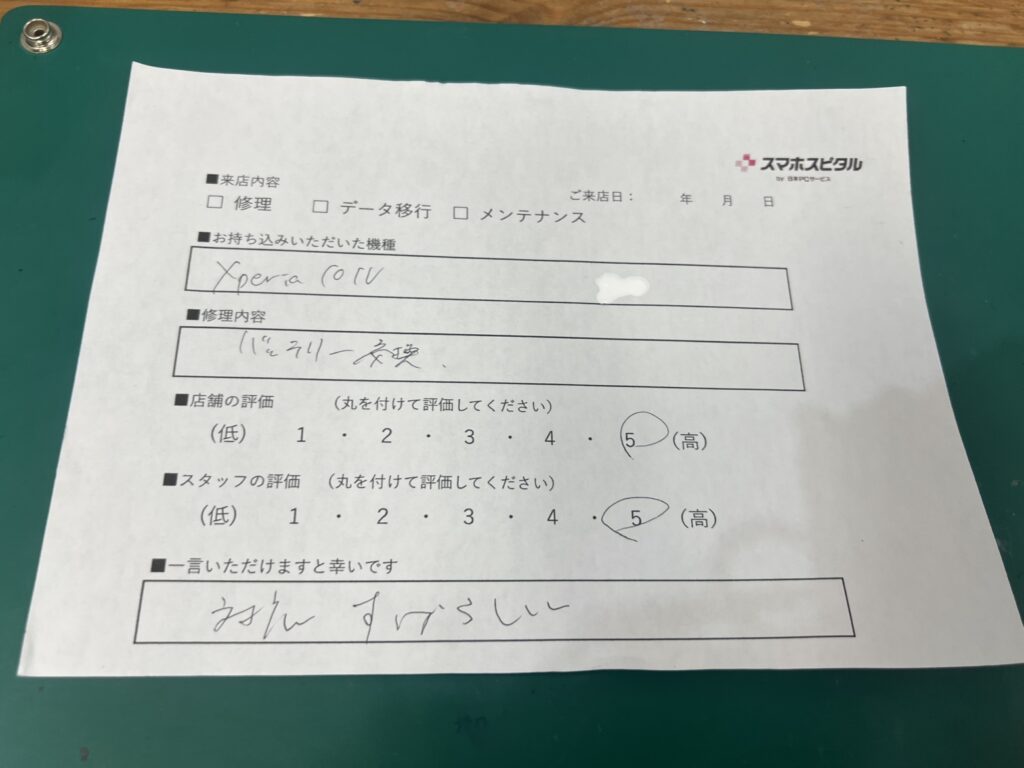 スマホスピタル
by 日本PCサービス
■来店内容
ご来店日： 年 月 日
□ 修理 □ データ移行 □ メンテナンス
■お持ち込みいただいた機種
Xperia 10 IV
■修理内容
バッテリー交換.
■店舗の評価 （丸を付けて評価してください）
（低） 1 ・ 2 ・ 3 ・ 4 ・ 5 （高）
■スタッフの評価 （丸を付けて評価してください）
（低） 1 ・ 2 ・ 3 ・ 4 ・ 5 （高）
■一言いただけますと幸いです
すばらしい